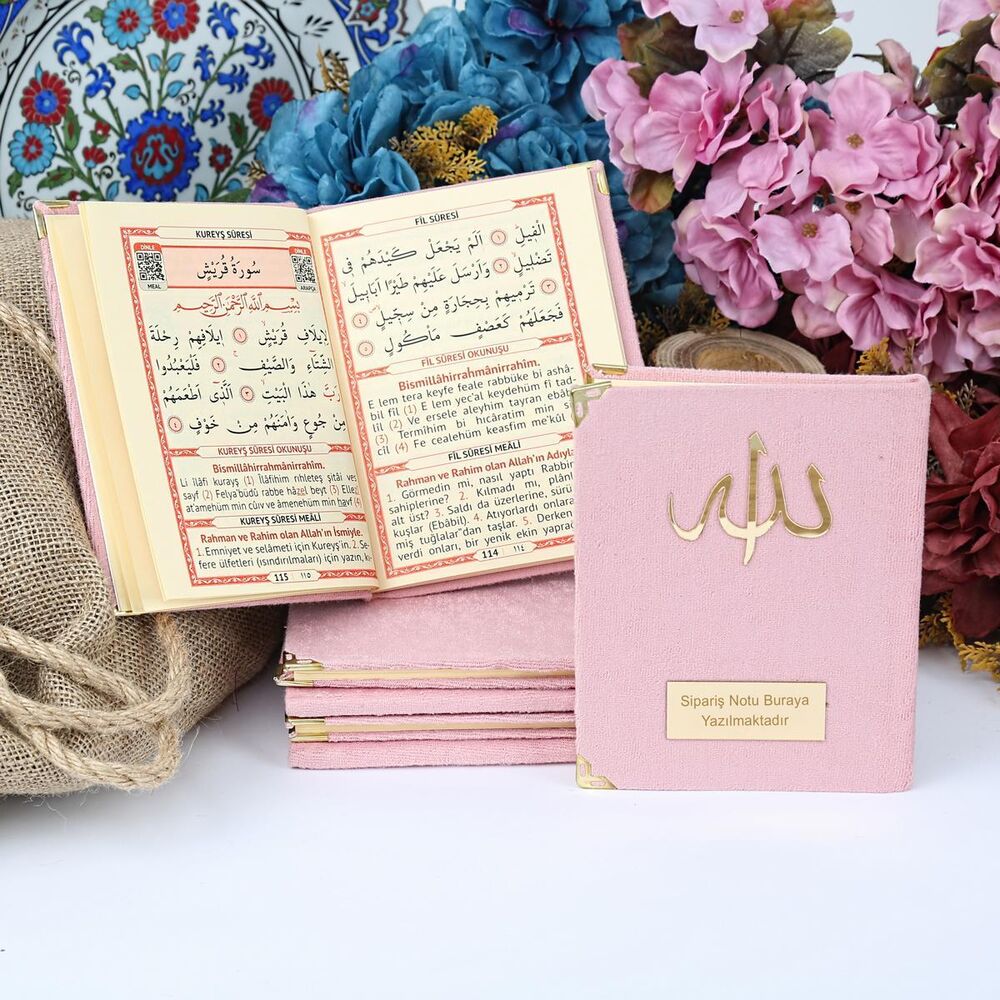 KUREYŞ SÛRESİ
DİNLE
MEAL
سُورَةُ قُرَيْشٍ
DİNLE
ARAPÇA
بِسْمِ اللّٰهِ الرَّحْمٰنِ الرَّحِيمِ
لِاِيلَافِ قُرَيْشٍ ﴿١﴾ اِيلَافِهِمْ رِحْلَةَ
الشِّتَٓاءِ وَالصَّيْفِ ﴿٢﴾ فَلْيَعْبُدُوا
رَبَّ هٰذَا الْبَيْتِ ﴿٣﴾ اَلَّذٓى اَطْعَمَهُمْ
مِنْ جُوعٍ وَاٰمَنَهُمْ مِنْ خَوْفٍ ﴿٤﴾
KUREYŞ SÛRESİ OKUNUŞU
Bismillâhirrahmânirrahîm.
Li îlâfi kurayş (1) Îlâfihim rihleteş şitâi ves
sayf (2) Felya'büdû rabbe hâzel beyt (3) Ellez
at'amehüm min cûıv ve âmenehüm min havf (4)
KUREYŞ SÛRESİ MEÂLİ
Rahman ve Rahim olan Allah'ın İsmiyle.
1. Emniyet ve selâmeti için Kureyş'in. 2. Se-
fere ülfetleri (ısındırılmaları) için yazın, kı
115 ١١٥
FİL SÛRESİ
الْفٖيلِ ﴿١﴾ اَلَمْ يَجْعَلْ كَيْدَهُمْ فٖى
تَضْلٖيلٍ ﴿٢﴾ وَاَرْسَلَ عَلَيْهِمْ طَيْرًا اَبَابٖيلَ
﴿٣﴾ تَرْمٖيهِمْ بِحِجَارَةٍ مِنْ سِجّٖيلٍ ﴿٤﴾
فَجَعَلَهُمْ كَعَصْفٍ مَأْكُولٍ ﴿٥﴾
FİL SÛRESİ OKUNUŞU
Bismillâhirrahmânirrahîm.
E lem tera keyfe feale rabbüke bi ashâ-
bil fîl (1) E lem yec'al keydehüm fî tad
(2) Ve ersele aleyhim tayran ebâb
(3) Termîhim bi hıcâratim min s
cîl (4) Fe cealehüm keasfim me'kûl
FİL SÛRESİ MEÂLİ
Rahman ve Rahim olan Allah'ın Adıyla
1. Görmedin mi, nasıl yaptı Rabbin
sahiplerine? 2. Kılmadı mı, plânl
alt üst? 3. Saldı da üzerlerine, sürü
kuşlar (Ebâbil). 4. Atıyorlardı onlara
miş tuğlalar'dan taşlar. 5. Derken
verdi onları, bir yenik ekin yaprağ
114 ١١٤
الله
Sipariş Notu Buraya
Yazılmaktadır